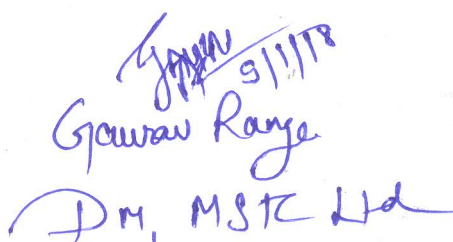 9/1/18
Gaurav Range
DM, MSTC Ltd